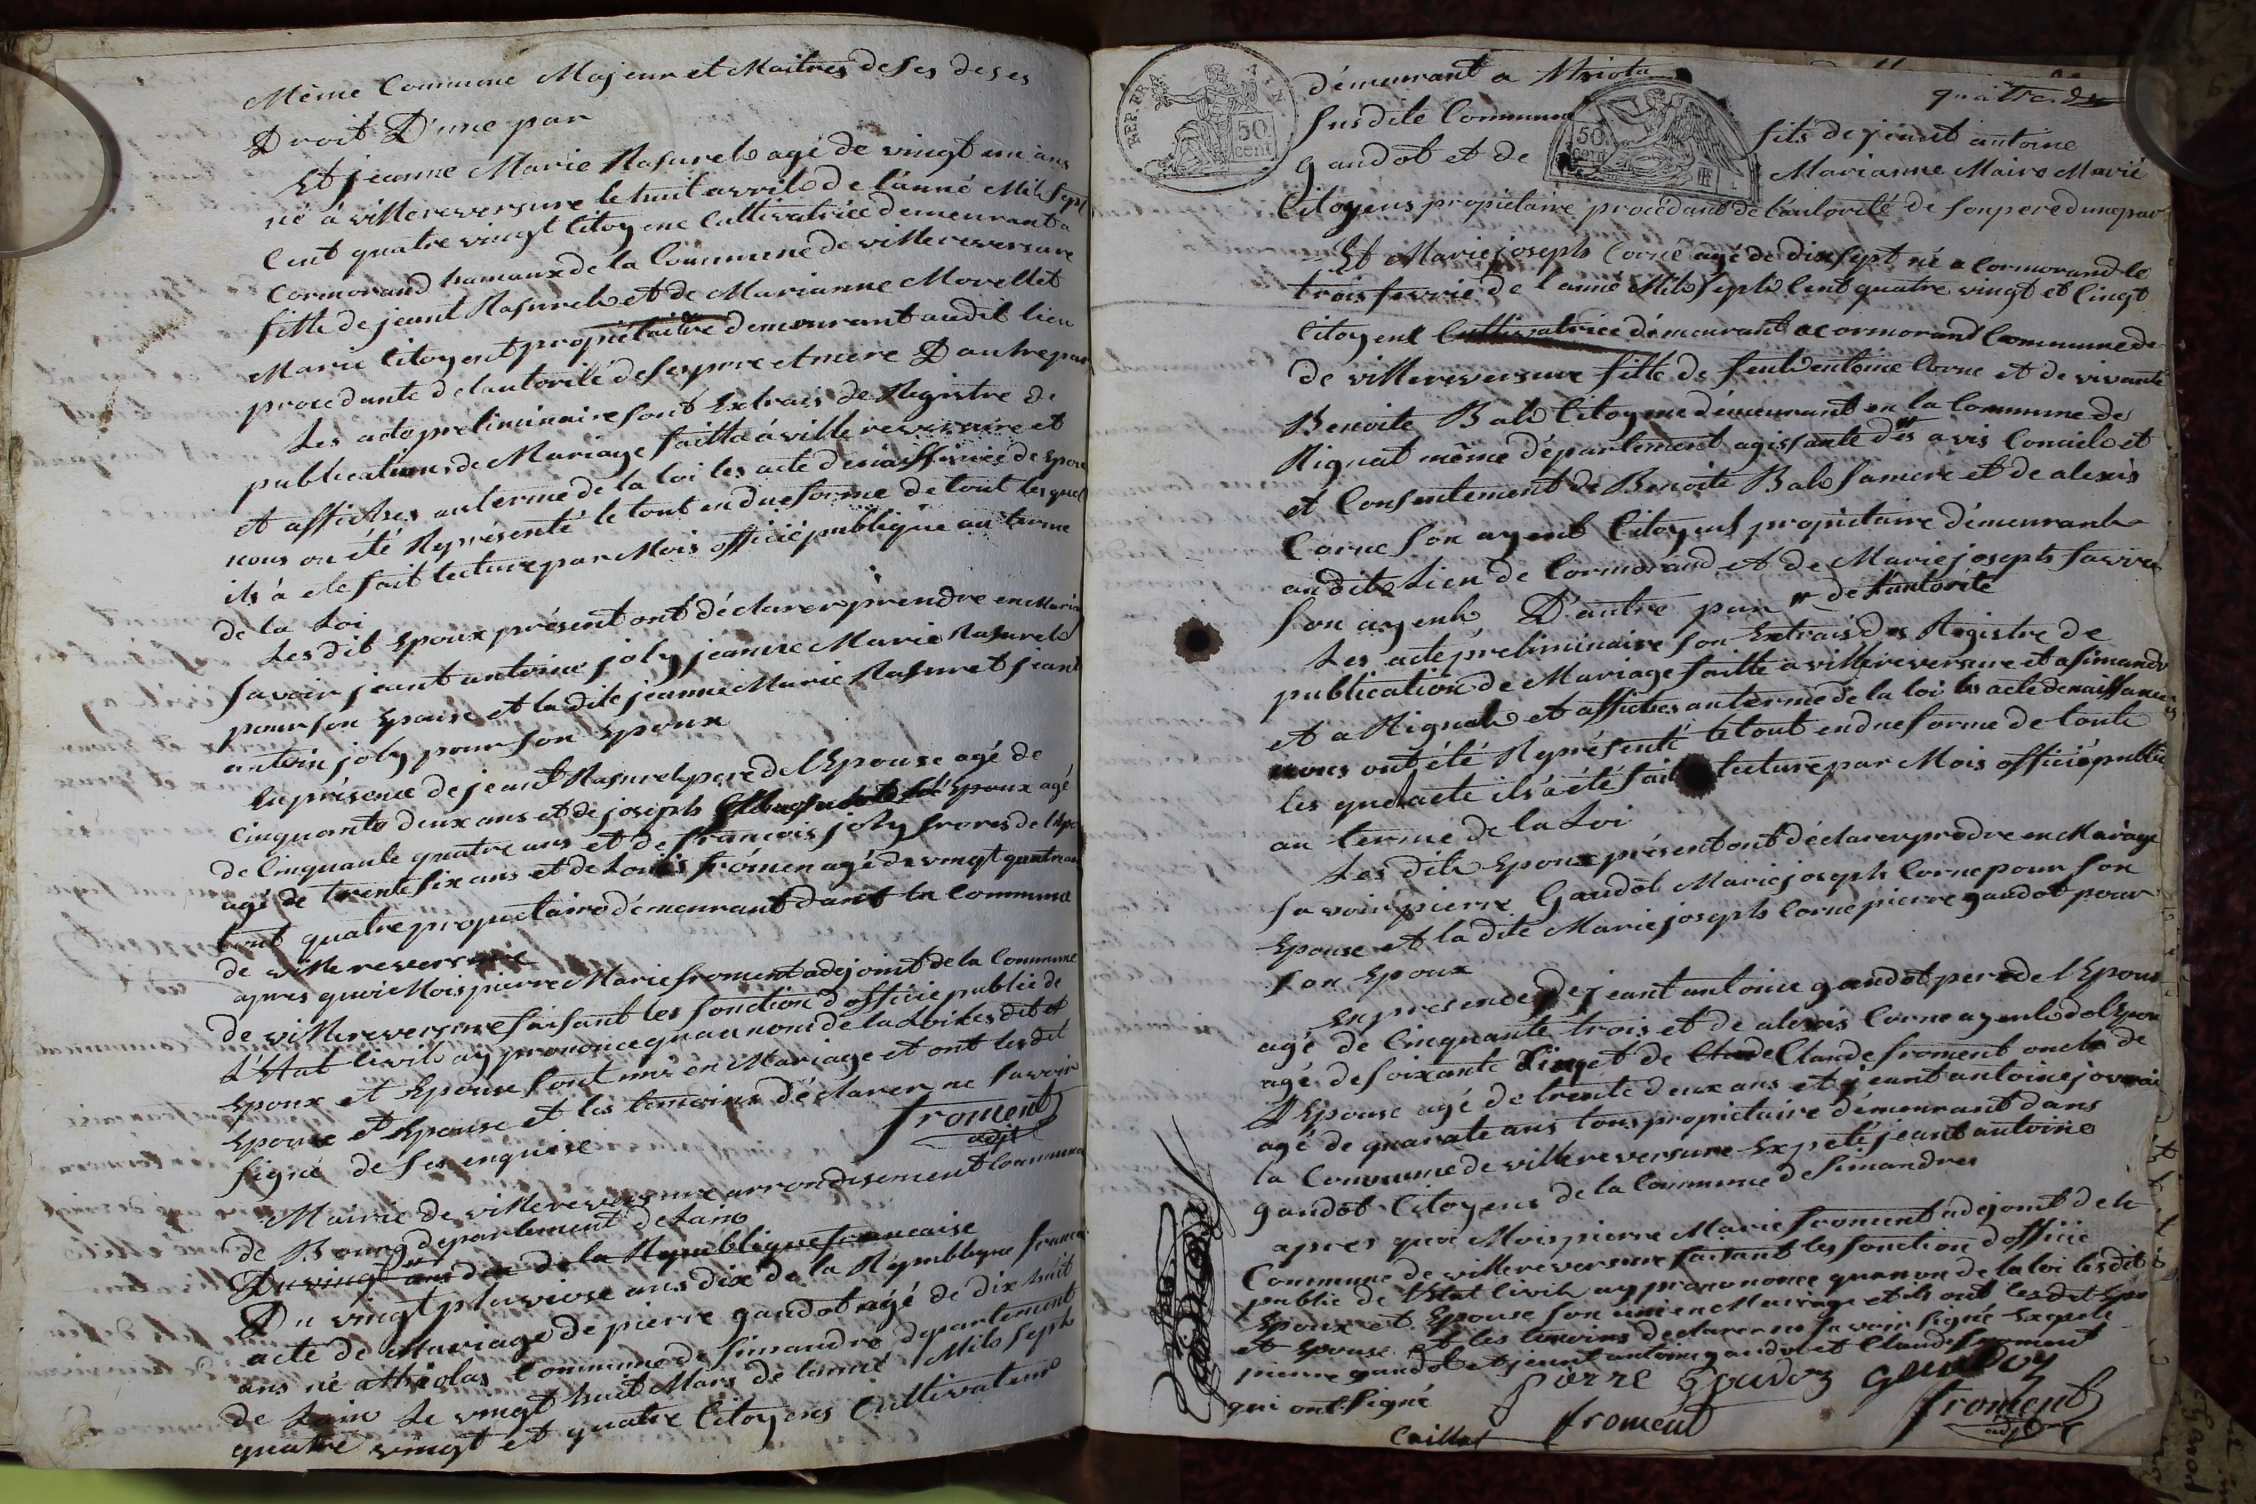 Même Commune Majeur et Maitres de ses deses
Droit D'une par
Et jeanne Marie Rasurel agé de vingt un ans
né à villereversure le huit avril de l'anné Mil sept
Cent quatre vingt Citoyene Cultivatrice demeurant a
Cormorand hamaux de la Commune de villereversure
fille de jeant Rasurel et de Marianne Morellet
Marie Citoyent propiétaitre demeurant audit lieu
procedante de lautorité de ses pere et mere D'autre par
Les acte preliminaire sont Extrais de Registre de
publications de Mariage faitta à villereversure et
et affiches auterme de la loi les acte denaissances de Epou
nous on été Représenté le tout en due forme de tout les quel
ils à ete fait lecture par Mois officié publique au terme
de la Loi
Les dit Epoux présent ont déclarer prendre en Maria
savoir jeant antoine joly jeanne Marie Rasurel
pour son Epouse et la dite jeanne Marie Rasuret jeant
antoin joly pour son Epoux
En présence de jeant Rasurel pere de l'Epouse agé de
Cinquante deux ans et de joseph Epoux agé
de Cinquante quatre ans et de francois joly freres de l'Epo
agé de trente six ans et de Louis fromen agé de vingt quatre an
tout quatre propietaire démeurant dant la Commune
de villereversure
apres quoi Mois pierre Marie froment adejoint de la Commune
de villereversure faisant les fonction d'officié public de
L'Etat Civil ay prononce quau nom de la Loi les dit
Epoux et Epouse sont unis en Mariage et ont les dit
Epoux et Epouse et les temoins déclarer ne savoir
signé de ses enquise
froment
adjt
Mairie de villereversure arrondisement Communal
de Bourg departement de Lain
Du vingt ans dix de la Republique francaise
Du vingt pluviose ans dix de la République francai
acte de Mariage de pierre gaudot agé de dix huit
ans né a thiolas Commune de Simandre departement
de Lain Le vingt huit Mars de l'anné Mil sept
quatre vingt et quatre Citoyens Cultivateur
REP. FRA.
50
cent
démeurant a
quatre
susdite Commune
50
cent
fils de jeant antoine
gaudot et de
Marianne Maire Marié
Citoyens propiétaire procédant de l'autorité de son pere dune par
Et Marie joseph Corne agé de dix sept né a Cormorand le
trois fevrié de l'anné Mil sept Cent quatre vingt et Cinqt
Citoyent Cultivatrice démeurant a cormorand Commune de
de villereversure fille de feut entoine Corne et de vivante
Benoite Bal Citoyene démeurant en la Commune de
Rignat même département agissante des avis Conciel et
et Consentement de Benoite Bal sa mere et de alexis
Corne son ayent Citoyent propietaire démeurant
au dit Lieu de Cormorand et de Marie joseph
son ayent D'autre par de l'autorité
Les acte preliminaire son Extrais des Registre de
publication de Mariage faitte a villereversure et a simandr
et a Rignat et affiches auterme de la loi les acte denaissances
nous ont été Représenté letout en due forme de toute
les quel acte ils à été fait lecture par Mois officié public
au terme de la Loi
Les dit Epoux présent ont déclarer prendre en Mariage
savoir pierre Gaudot Marie joseph Corne pour son
Epouse et la dite Marie joseph Corne pierre gaudot pour
son Epoux
En presence de jeant antoine gaudot pere de l'Epoux
agé de Cinquante trois et de alexis Corne ayent de l'Epou
agé de soixante et de Claude froment oncle de
l'Epouse agé de trente deux ans et jeant antoine
agé de quarate ans tous propietaire démeurant dans
la Commune de villereversure Expeté jeant antoine
gaudot Citoyens de la Commune de Simandres
apres quoi Mois pierre Marie froment adejoint de la
Commune de villereversure faisant les fonction d'officié
public de l'Etat Civil ay pronononce quau non de la loi les dit
Epoux et Epouse son unis en Mariage et ils ont les dit Epo
et Epouse et les temoins déclarer ne savoir signé Expeté
pierre gaudot et jeant antoine gaudot et Claude froment
qui ont signé
pierre gaudoz gaudoz
froment froment
adjt
Caillat